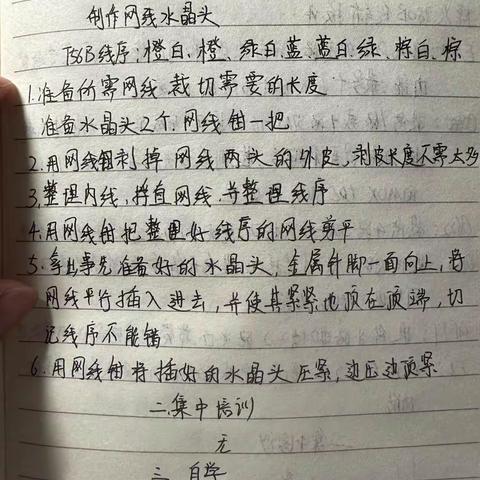 制作网线水晶头
T56B线序:橙白、橙、绿白、蓝、蓝白、绿、棕白、棕
1.准备所需网线 裁切需要的长度
准备水晶头2个、网线钳一把
2.用网线钳剥掉网线两头的外皮,剥皮长度不需太多
3.整理内线,捋直网线,并整理线序
4.用网线钳把整理好线序的网线剪平
5.拿出事先准备好的水晶头,金属针脚一面向上,将
网线平行插入进去,并使其紧紧地顶在顶端,切
记线序不能错
6.用网线钳将插好的水晶头压紧,边压边顶紧
二.集中培训
无
三、自学